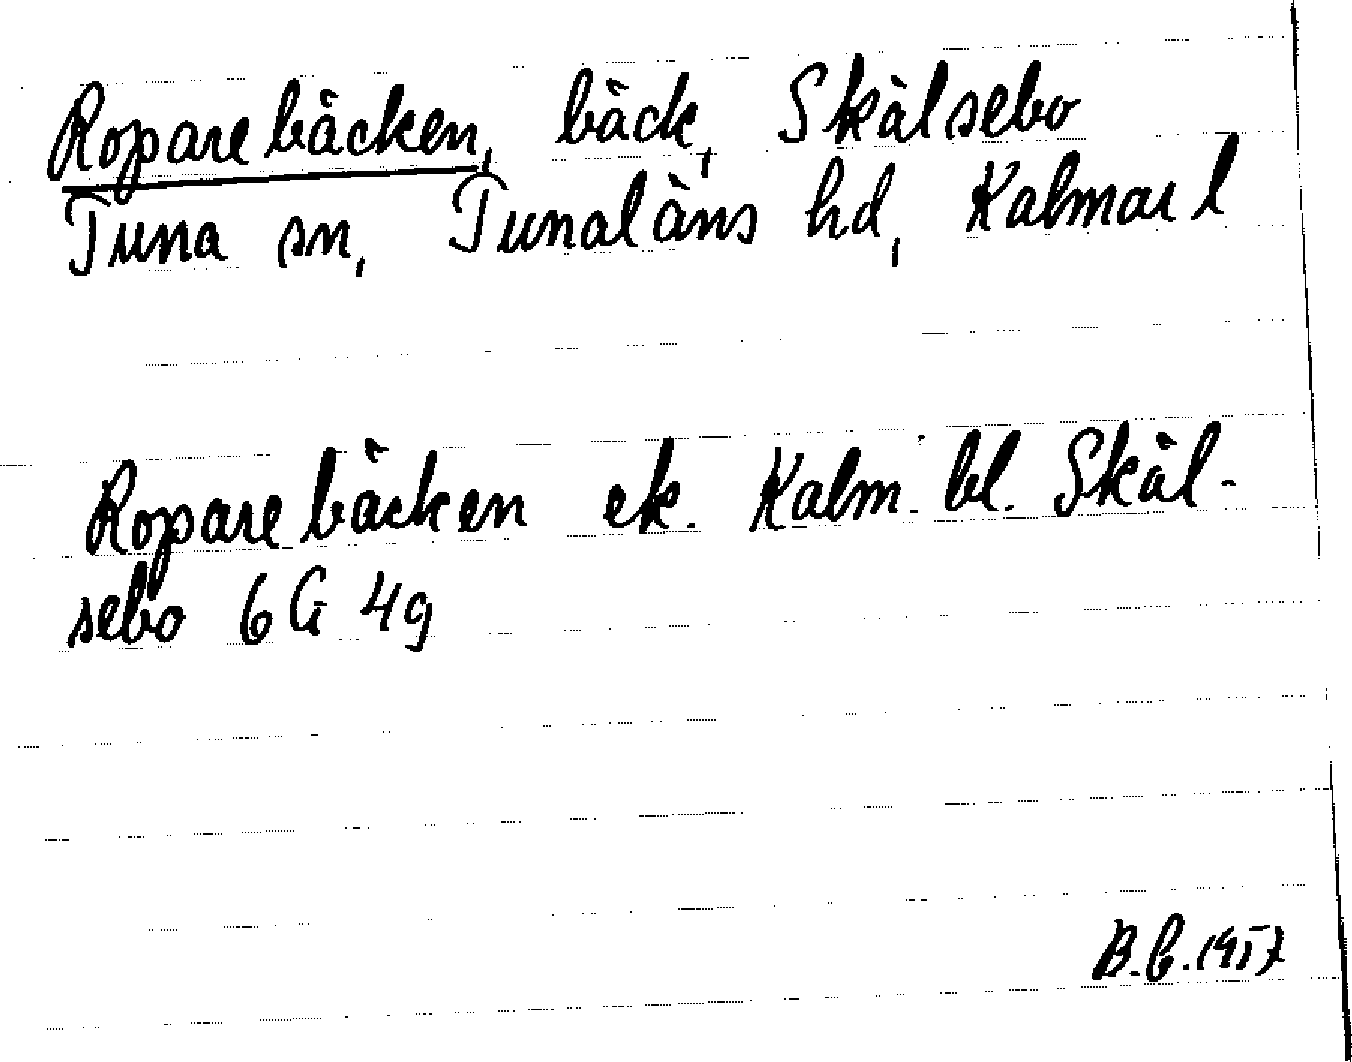 Roparebäcken, bäck, Skälsebo
Tuna sn, Tunaläns hd, Kalmar l
Roparebäcken ek. Kalm. bl. Skäl-
sebo 6 G 4g
B.G. 1957